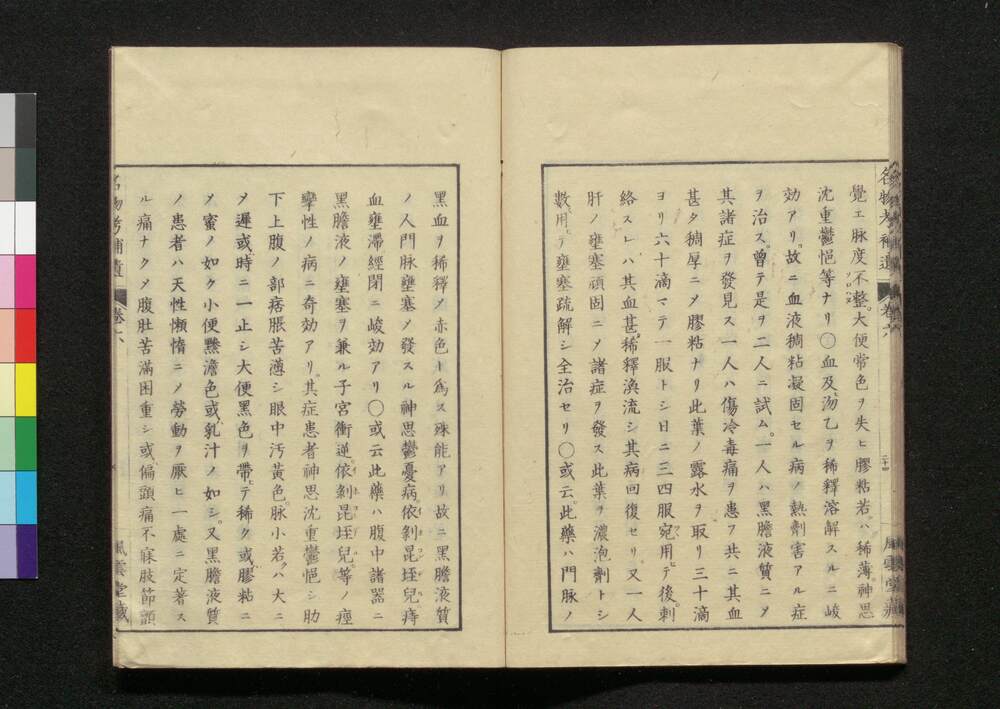 覺エ脉度不整。大便常色ヲ失ヒ膠粘若。ハ稀薄。神思
沈重鬱悒等ナリ〇血及泐乙ヲ稀釋溶解スルニ峻
効アリ。故ニ血液稠粘凝固セル病ノ熱劑害アル症
ヲ治ス。曾テ是ヲ二人ニ試ム。一人ハ黑膽液質ニメ
其諸症ヲ發見ス一人ハ傷冷毒痛ヲ患フ共ニ其血
甚タ稠厚ニメ膠粘ナリ此葉ノ露水ヲ取リ三十滴
ヨリ六十滴マテ一服トシ日ニ三四服宛用ヒテ後。刺
絡スレハ其血甚。稀釋渙流シ其病回復セリ。又一人
肝ノ壅塞頑固ニメ諸症ヲ發ス此葉ヲ濃泡劑トシ
數用。テ壅塞疏解シ全治セリ〇或云。此藥ハ門脉ノ
名物考補遺 卷六 風雲堂藏
黑血ヲ稀釋ノ赤色ト爲ス殊能アリ故ニ黑膽液質
ノ人門脉壅塞メ發スル神思鬱憂病依剝昆垤兒痔
血壅滯經閉ニ峻効アリ〇或云此藥ハ腹中諸器ニ
黑膽液ノ壅塞ヲ兼ル子宮衝逆。依剝昆垤兒等ノ痙
攣性ノ病ニ奇効アリ。其症患者神思沈重鬱悒シ肋
下上腹ノ部痞脹苦滿シ眼中汚黃色。脉小若クハ大ニ
メ遲或時ニ一止シ大便黑色ヲ帶ヒテ稀ク或膠粘ニ
メ蜜ノ如ク小便黲澹色或乳汁ノ如シ。又黑膽液質
ノ患者ハ天性懶惰ニメ勞動ヲ厭ヒ一處ニ定著ス
ル痛ナクメ腹肚苦滿困重シ或偏頭痛不寐肢節顫
名物考補遺 卷六 風雲堂藏